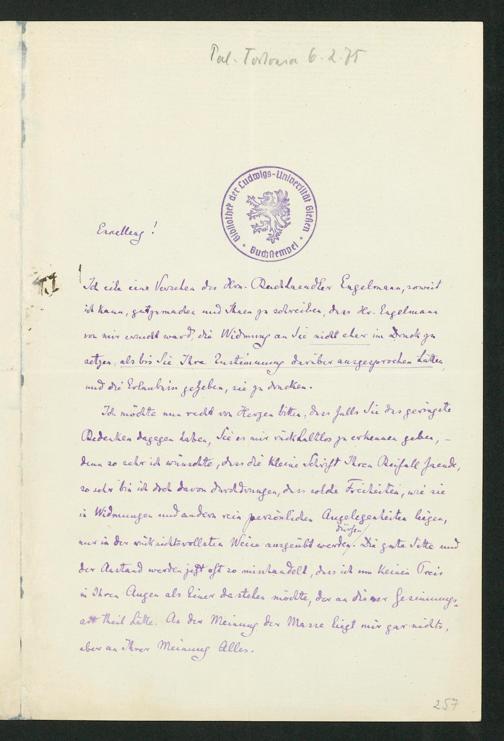 Pal. Torlonia 6.2.75
Bibliothek der Ludwigs-Universität Gießen
Buchstempel
Excellenz!
Ich eile eine Versehen des Hrn. Buchhaendler Engelmann, soweit
ich kann, gutzumachen und Ihnen zu schreiben, dass Hr. Engelmann
von mir ersucht ward, die Widmung an Sie nicht eher im Druck zu
setzen, als bis Sie Ihre Zustimmung darüber ausgesprochen hätten,
und die Erlaubniss gegeben, sie zu drucken.
Ich möchte nun recht von Herzen bitten, dass falls Sie das geringste
Bedenken dagegen haben, Sie es mir rückhaltlos zu erkennen geben, –
denn so sehr ich wünschte, dass die kleine Schrift Ihren Beifall faende,
so sehr bin ich doch davon durchdrungen, dass solche Freiheiten, wie sie
in Widmungen und andern rein persönlichen Angelegenheiten liegen,
nur in der rücksichtsvollsten Weise ausgeübt werden dürfen. Die gute Sitte und
der Anstand werden jetzt oft so misshandelt, dass ich um keinen Preis
in Ihren Augen als Einer dastehen möchte, der an dieser Gesinnungs-
art Theil hätte. An der Meinung der Masse liegt mir gar nichts,
aber an Ihrer Meinung Alles.
257